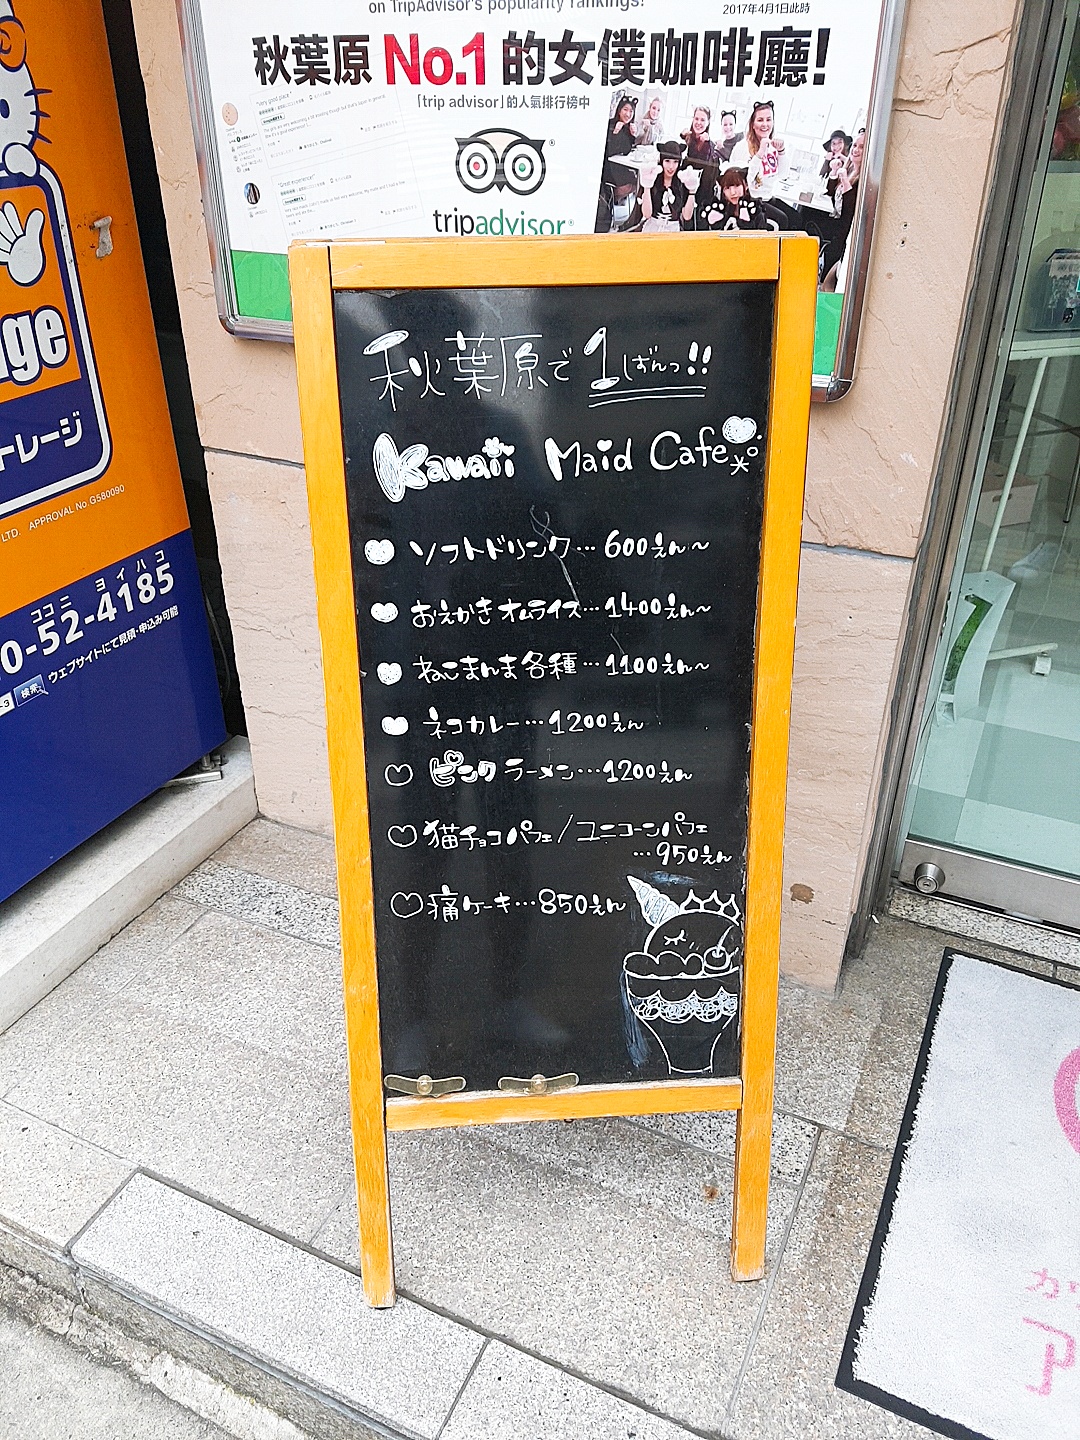 on TripAdvisor's popularity rankings!
2017年4月1日此時
秋葉原 No.1 的女僕咖啡廳!
「trip advisor」的人氣排行榜中
"Very good place"
"Great experience!"
tripadvisor®
秋葉原で1ばんっ!!
Kawaii Maid Cafe
ソフトドリンク…600えん〜
おえかきオムライス…1400えん〜
ねこまんま各種…1100えん〜
ネコカレー…1200えん
ピンクラーメン…1200えん
猫チョコパフェ/ユニコーンパフェ
…950えん
痛ケーキ…850えん
age
トレージ
LTD. APPROVAL No.G580090
ココニ ヨイハコ
0-52-4185
検索
ウェブサイトにて見積・申込み可能
か
ア